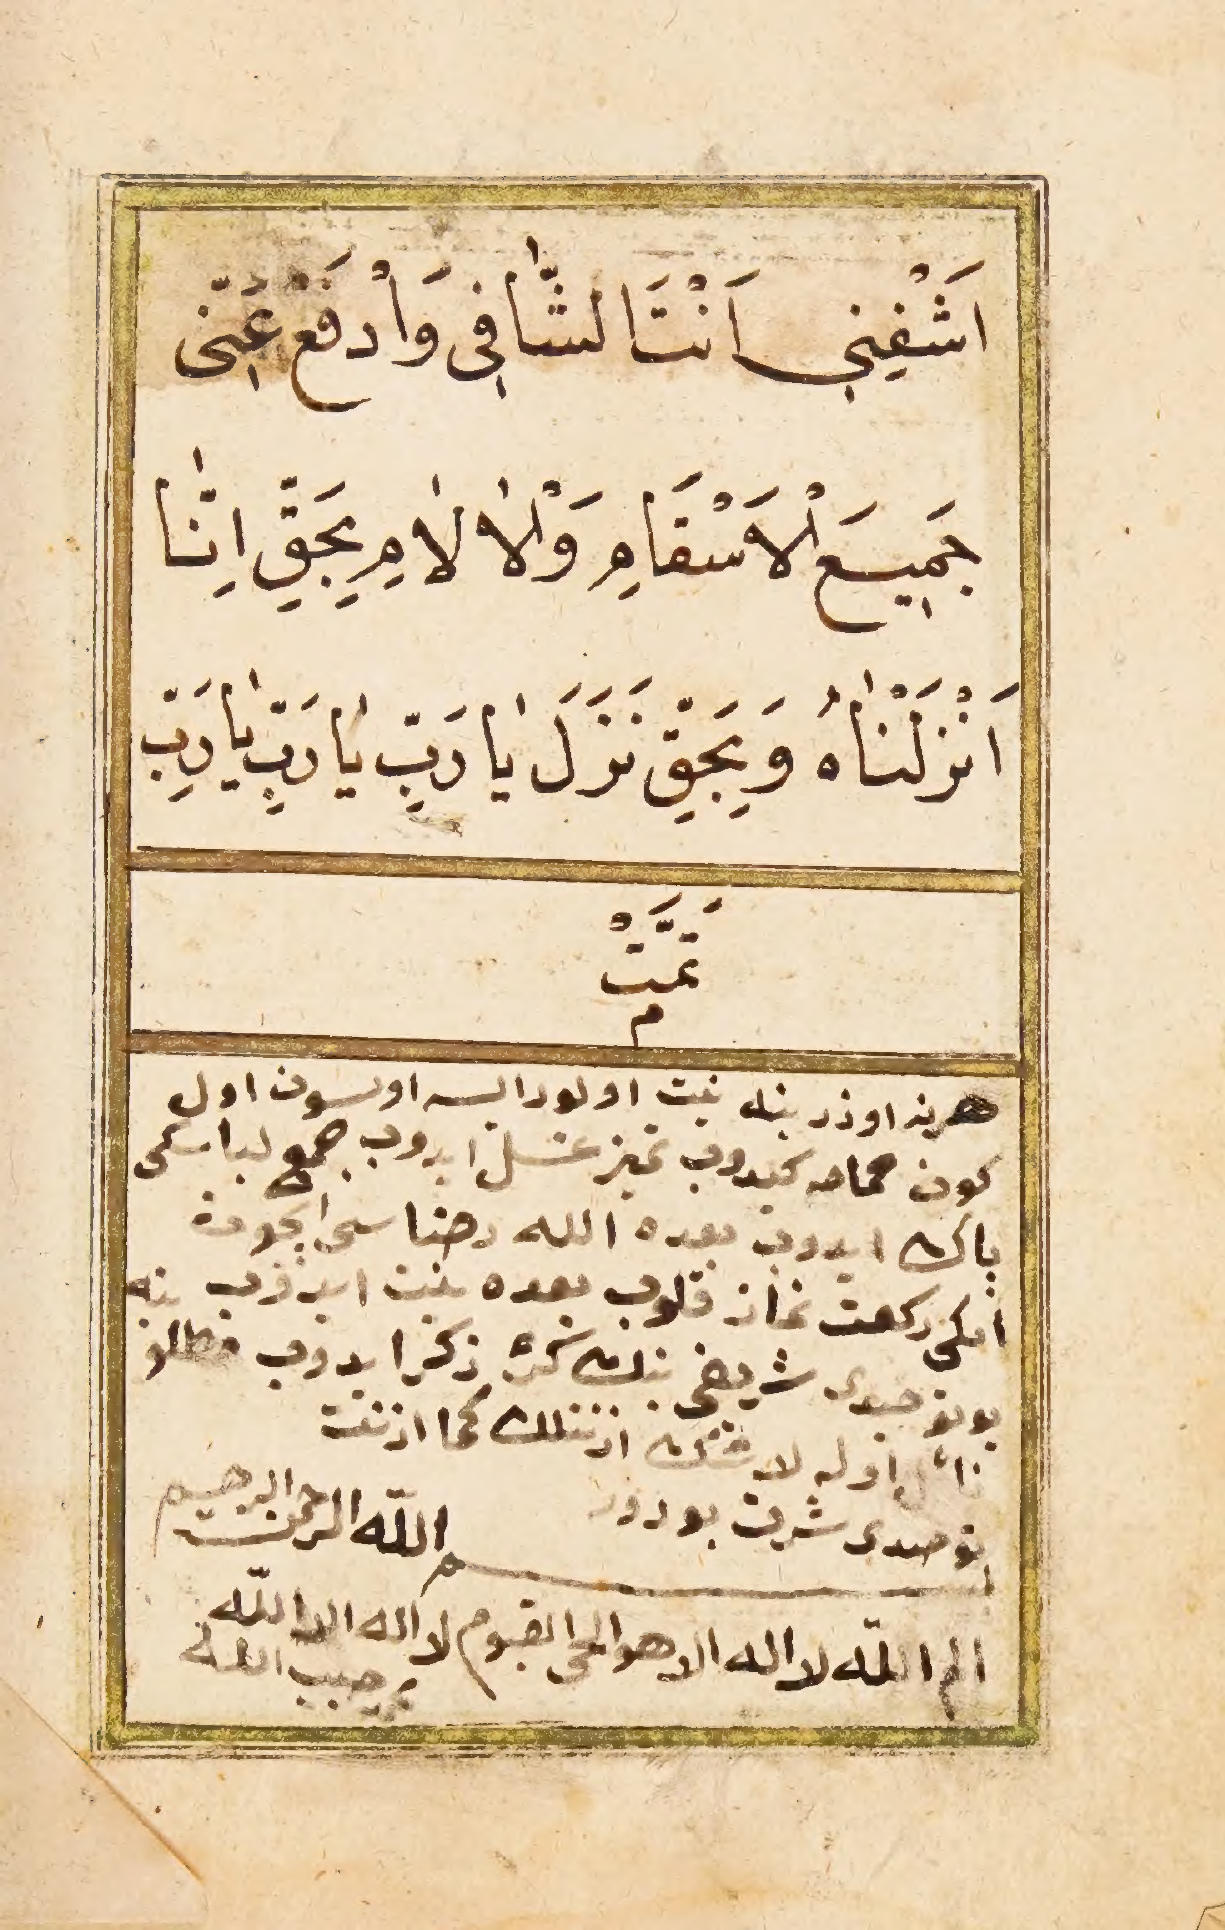 اَشْفِينِي اَنْتَ الشَّافِي وَاْدفَعْ عَنِّي
جَمِيعَ الْاَسْقَامِ وَالْاٰلَامِ بِحَقِّ اِنَّا
اَنْزَلْنَاهُ وَبِحَقِّ نَزَلَ يَا رَبِّ يَا رَبِّ يَا رَبِّ
تَمَّتْ
م
هرنه اوزرينه نيت اولورايسه اولسون اول
كون حمامه كيدوب تميز غسل ايدوب جميع لباسنى
پاك ايدوب بعده الله رضاسى ايچون
ايكى ركعت نماز قلوب بعده نيت ايدوب ينه
بو توحيدى شريفى بيك كره ذكر ايدوب مطلو
نائل اوله لا شك اذنتلك كما اذنت
توحيدى شريف بودور
بسم الله الرحمن الرحيم
الم الله لا اله الا هو الحى القيوم لا اله الا الله
حبيب الله